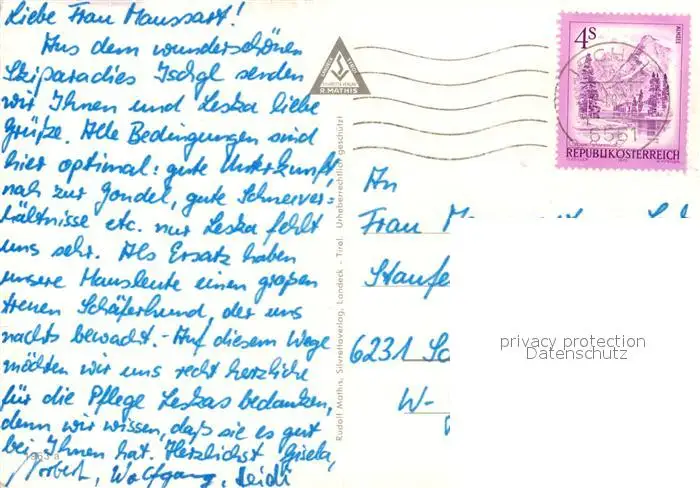 Liebe Frau Maussart!
Aus dem wunderschönen
Skiparadies Ischgl senden
wir Ihnen und Leska liebe
Grüße. Alle Bedingungen sind
hier optimal: gute Unterkunft,
nah zur Gondel, gute Schneever-
hältnisse etc. nur Leska fehlt
uns sehr. Als Ersatz haben
unsere Hausleute einen großen
treuen Schäferhund, der uns
nachts bewacht. - Auf diesem Wege
möchten wir uns recht herzliche
für die Pflege Leskas bedanken,
denn wir wissen, daß sie es gut
bei Ihnen hat. Herzlichst Gisela,
Norbert, Wolfgang, Heidi
R. MATHIS
Rudolf Mathis, Silvrettaverlag, Landeck - Tirol. Urheberrechtlich geschützt!
4S
ALMSEE
REPUBLIK ÖSTERREICH
ISCHGL
6561
An
Frau
Staufe
6231
W-
privacy protection
Datenschutz